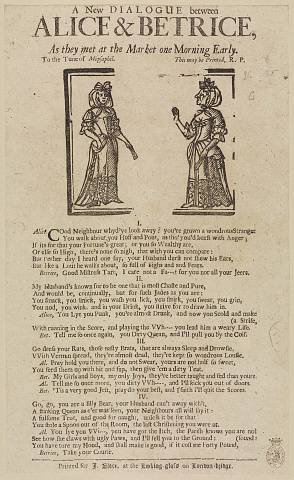 A New DIALOGUE between
ALICE & BETRICE,
As they met at the Market one Morning Early.
To the Tune of
This may be Printed, R. P.
I.
Alice GOod Neighbour why d'ye look away? you're grown a wondrous Stranger
You walk about, you Huff and Pout, as tho' you'd burst with Anger;
If its for that your Fortune's great, or you so Wealthy are,
Or else so High, there's none so nigh, that with you can compare:
But t'other day I heard one say, your Husband durst not shew his Ears,
But like a Lout he walks about, so full of Sighs and and Fears.
Betrice, Good Mistress Tart, I care not a Fa---t for you nor all your Jeers.
II.
My Husband's known for to be one that is most Chaste and Pure,
And would be, continually, but for such Jades as you are:
You smack, you smick, you wash you lick, you smirk, you swear, you grin,
You nod, you wink, and in your Drink, you strive for to draw him in.
Alice, You Lye you Punk, you're almost Drunk, and now you Scold and make
(a Strife,
With running in the Score, and playing the Wh--- you lead him a weary Life.
Bet. Tell me so once again, you Dirty Quean, and I'll pull you by the Coif.
III.
Go dress your Brats, those nasty Brats, that are always Sleep and Drowsie,
With Vermin spread, they're almost dead, they're kept so wondrous Lousie,
Al. Prey hold you there, and do not Swear, yours are not half so sweet,
You feed them up with bit and sup, then give 'em a dirty Teat.
Bet. My Girls and Boys, my only Joys, they're better taught and fed than yours.
Al. Tell me so once more, you dirty Wh---, and I'll kick you out of doors.
Bet. 'Tis a very good Jest, pray do your best, and I'll quit the Scores.
IV.
Go, go, you are a silly Bear, your Husband can't away with't,
A stinking Quean as e'er was seen, your Neighbours all will say it:
A fulsome Trot, and good for naught, unless it be for that
You stole a Spoon out of the Room, the last Christning you were at.
Al. You lye you W---, you have got the Itch, the Parish knows you are not
(sound:
See how she claws with ugly Paws, and I'll fell you to the Ground:
I'll have you tear my Hood, and shall make it good, if it cost me Forty Pound,
Betrice, Take your Course.
Printed for J. Blare, at the Looking-glass on London-bridge.